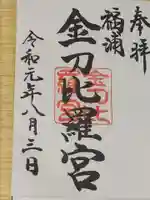 奉拝
福浦
金刀比羅宮
令和元年八月三日